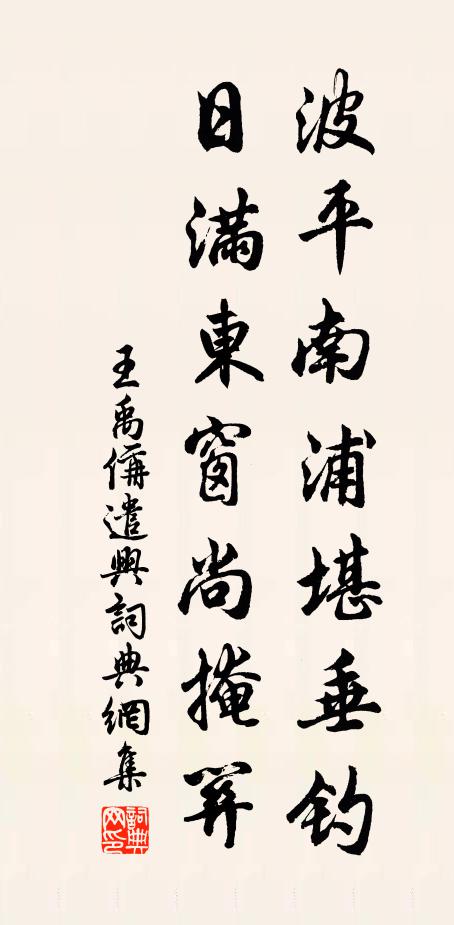 波平南浦堪垂釣
日滿東窗尚掩關
王禹偁遣興詞典網集
詞典网印